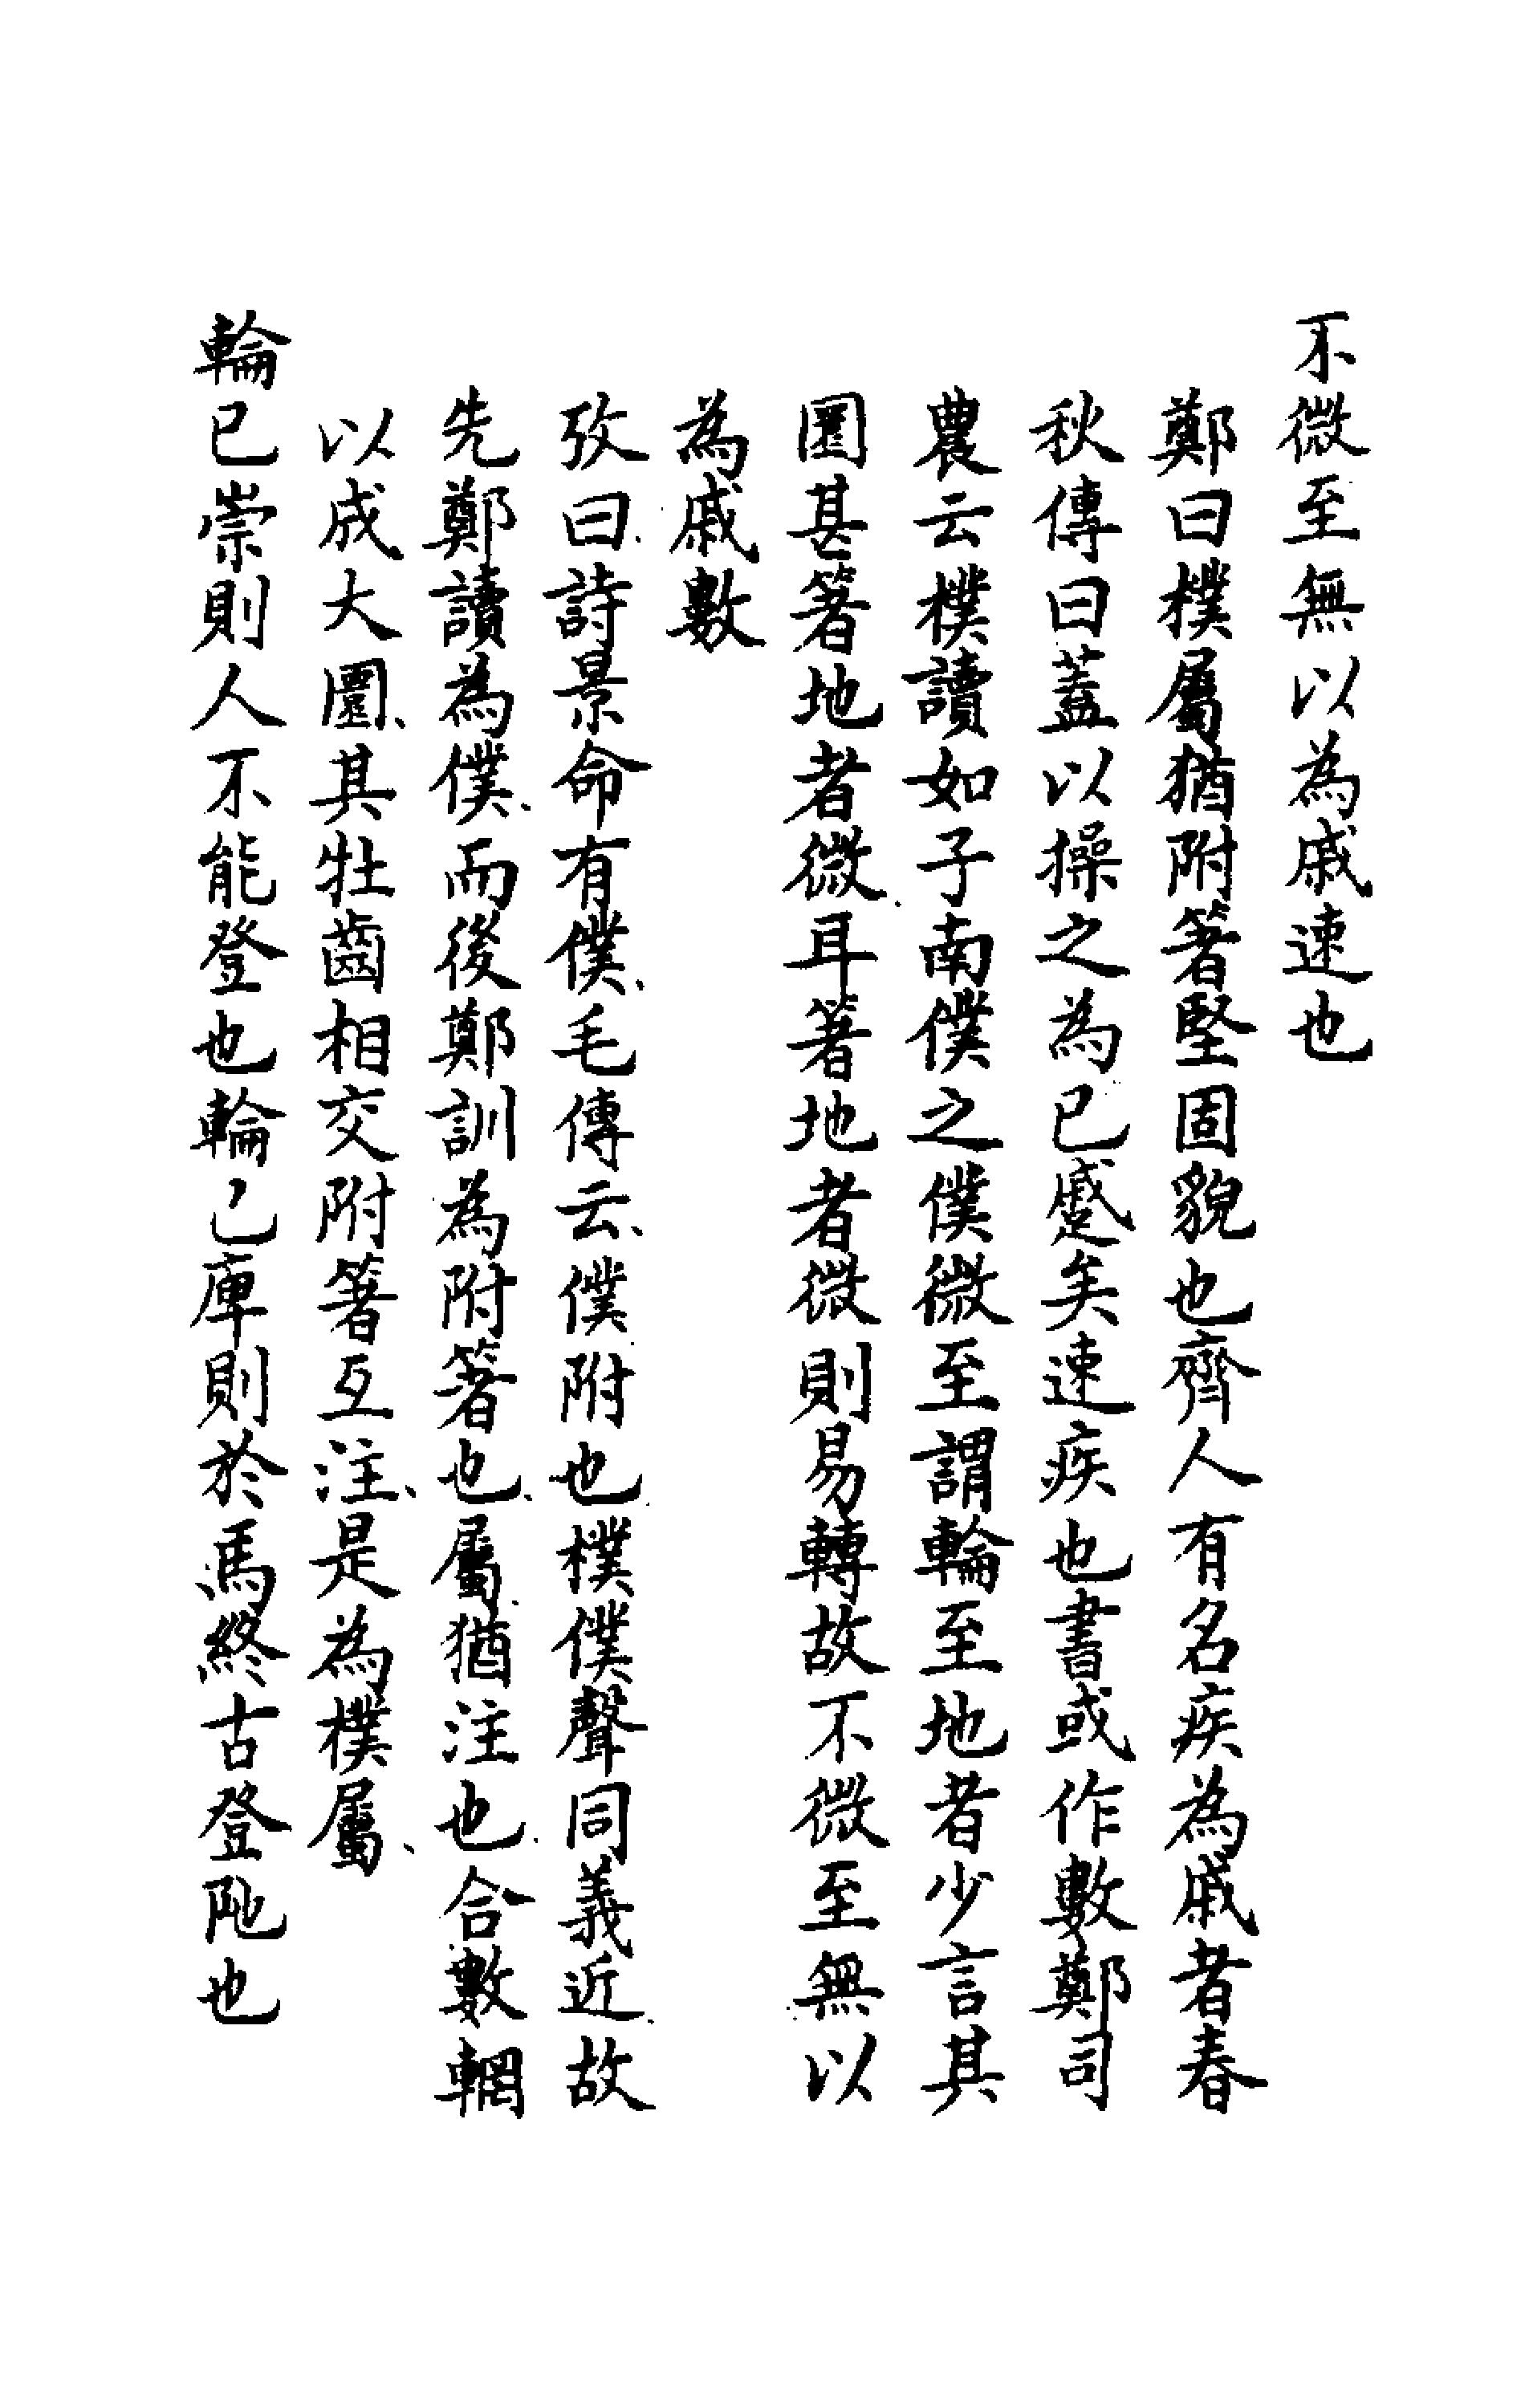 不微至無以為戚速也
鄭曰樸屬猶附箸堅固貌也齊人有名疾為戚者春
秋傳曰蓋以操之為已蹙矣速疾也書或作數鄭司
農云樸讀如子南僕之僕微至謂輪至地者少言其
圜甚箸地者微耳箸地者微則易轉故不微至無以
為戚數
攷曰詩景命有僕毛傳云僕附也樸僕聲同義近故
先鄭讀為僕而後鄭訓為附箸也屬猶注也合數輞
以成大圜其牡齒相交附箸互注是為樸屬
輪已崇則人不能登也輪已庳則於馬終古登阤也